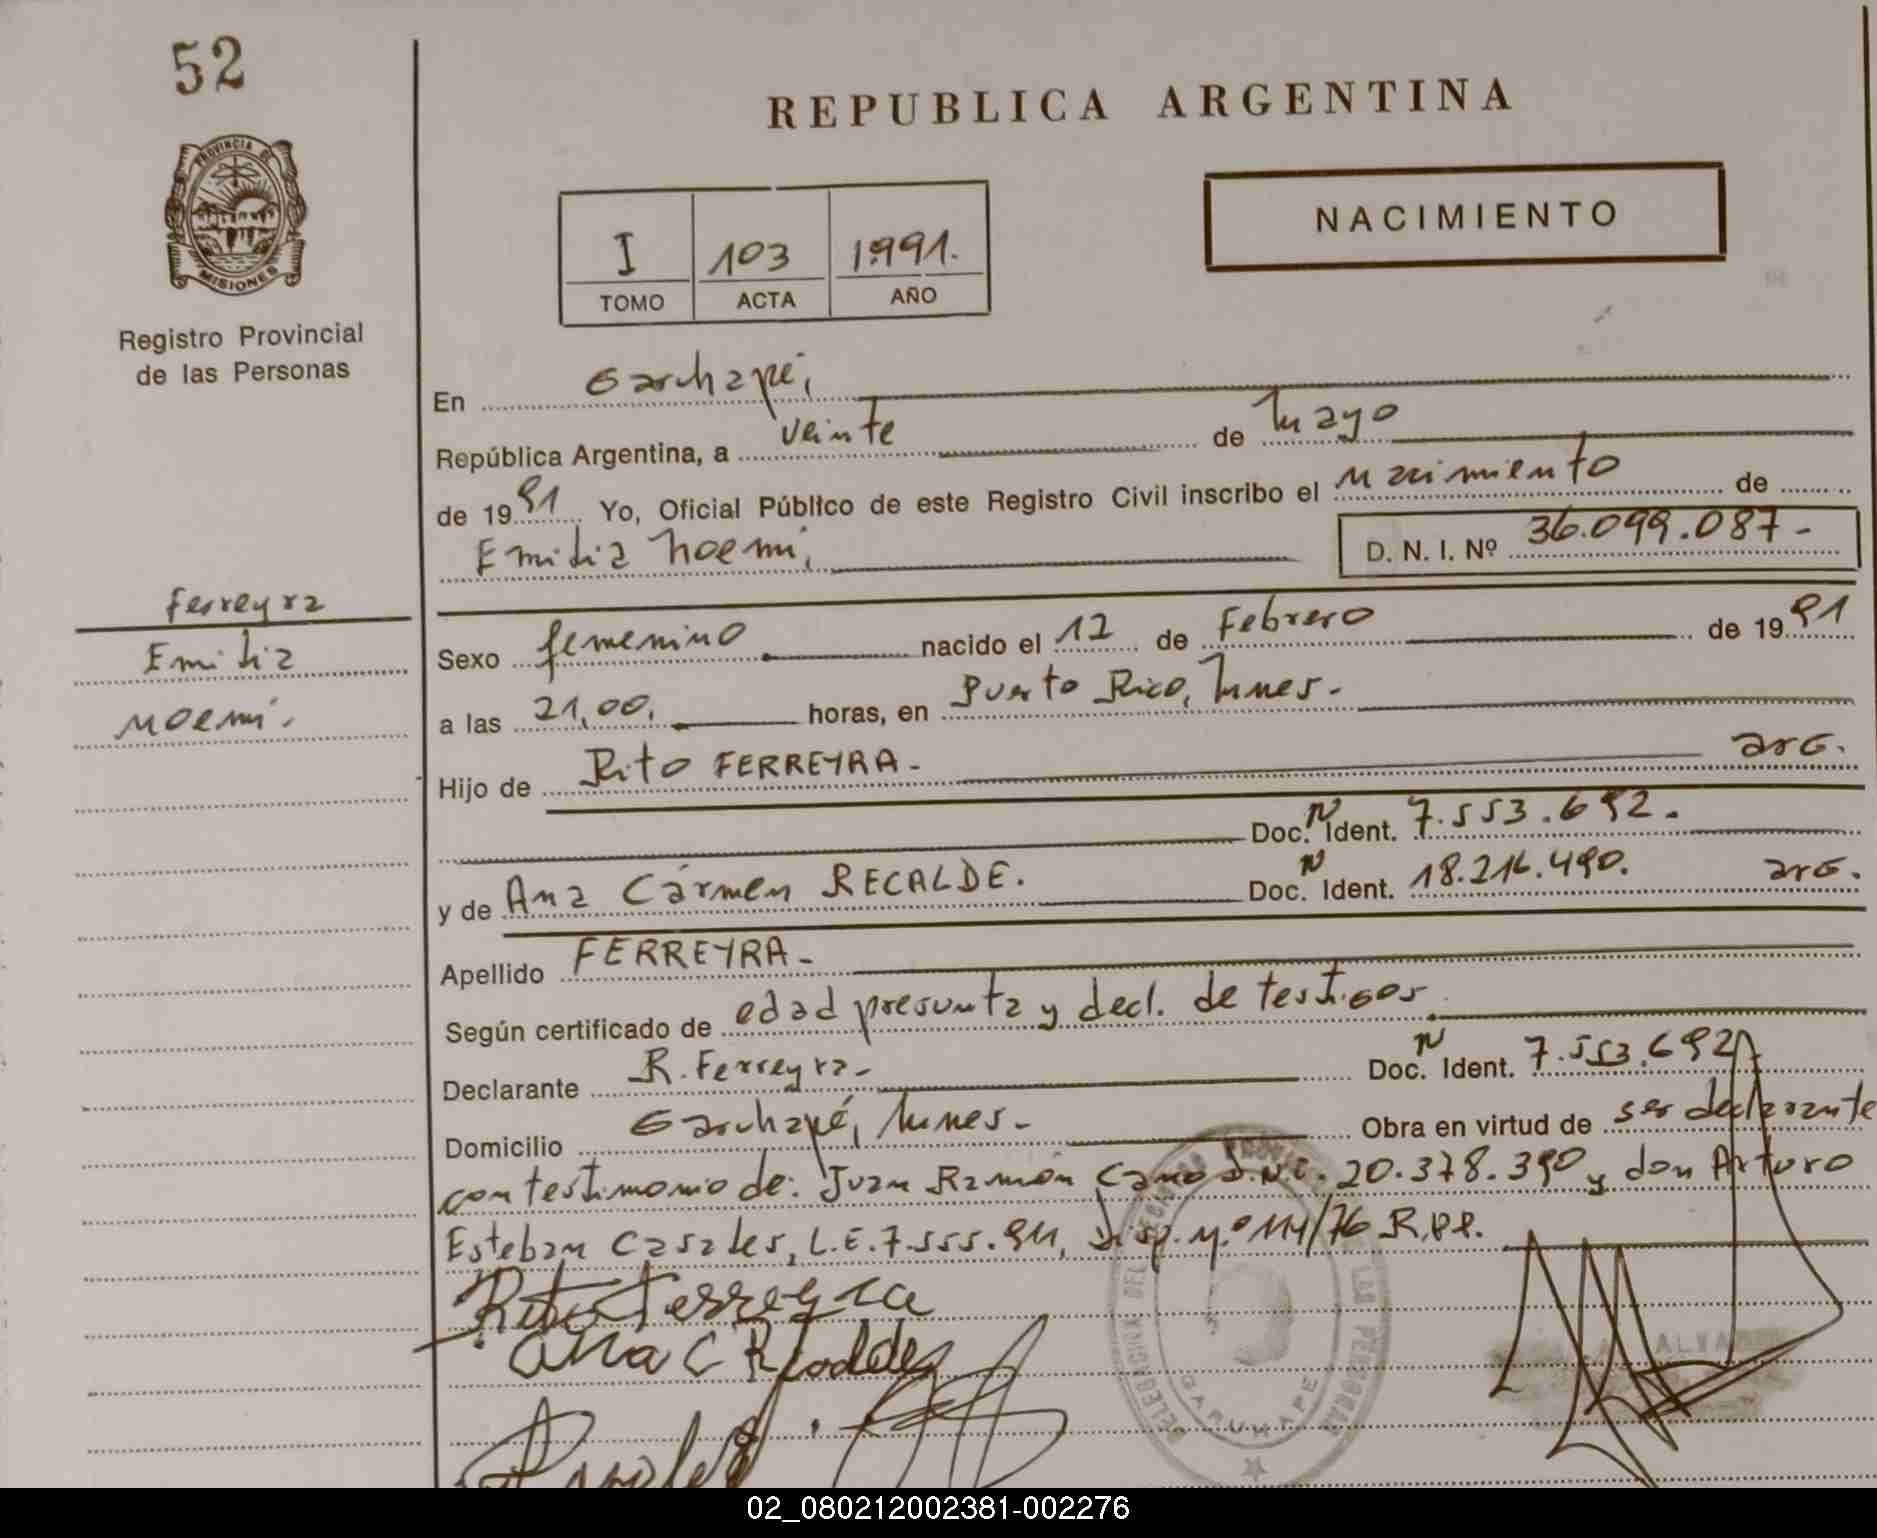 52
REPUBLICA ARGENTINA
PROVINCIA DE
MISIONES
Registro Provincial
de las Personas
NACIMIENTO
I 103 1991.
TOMO ACTA AÑO
En Garuhapé,
República Argentina, a veinte de Mayo
de 1991 Yo, Oficial Público de este Registro Civil inscribo el nacimiento de
Emilia Noemi,
D. N. I. Nº 36.099.087-
Ferreyra
Emilia
Noemi.
Sexo femenino nacido el 12 de Febrero de 1991
a las 21,00, horas, en Puerto Rico,
Hijo de Rito FERREYRA- arg.
Doc. N Ident. 7.553.692.
y de Ana Cármen RECALDE. Doc. N Ident. 18.216.490. arg.
Apellido FERREYRA-
Según certificado de edad presunta y decl. de testigos.
Declarante R. Ferreyra- Doc. N Ident. 7.553.692
Domicilio Garuhapé, Obra en virtud de ser declarante
con testimonio de: Juan Ramón Cano D.N.I. 20.378.390 y don Arturo
Esteban Casales, L.E. Disp. nº 114/76 R.P.P.
Rito Ferreyra
Ana C Recalde
GARUHAPE
02_080212002381-002276